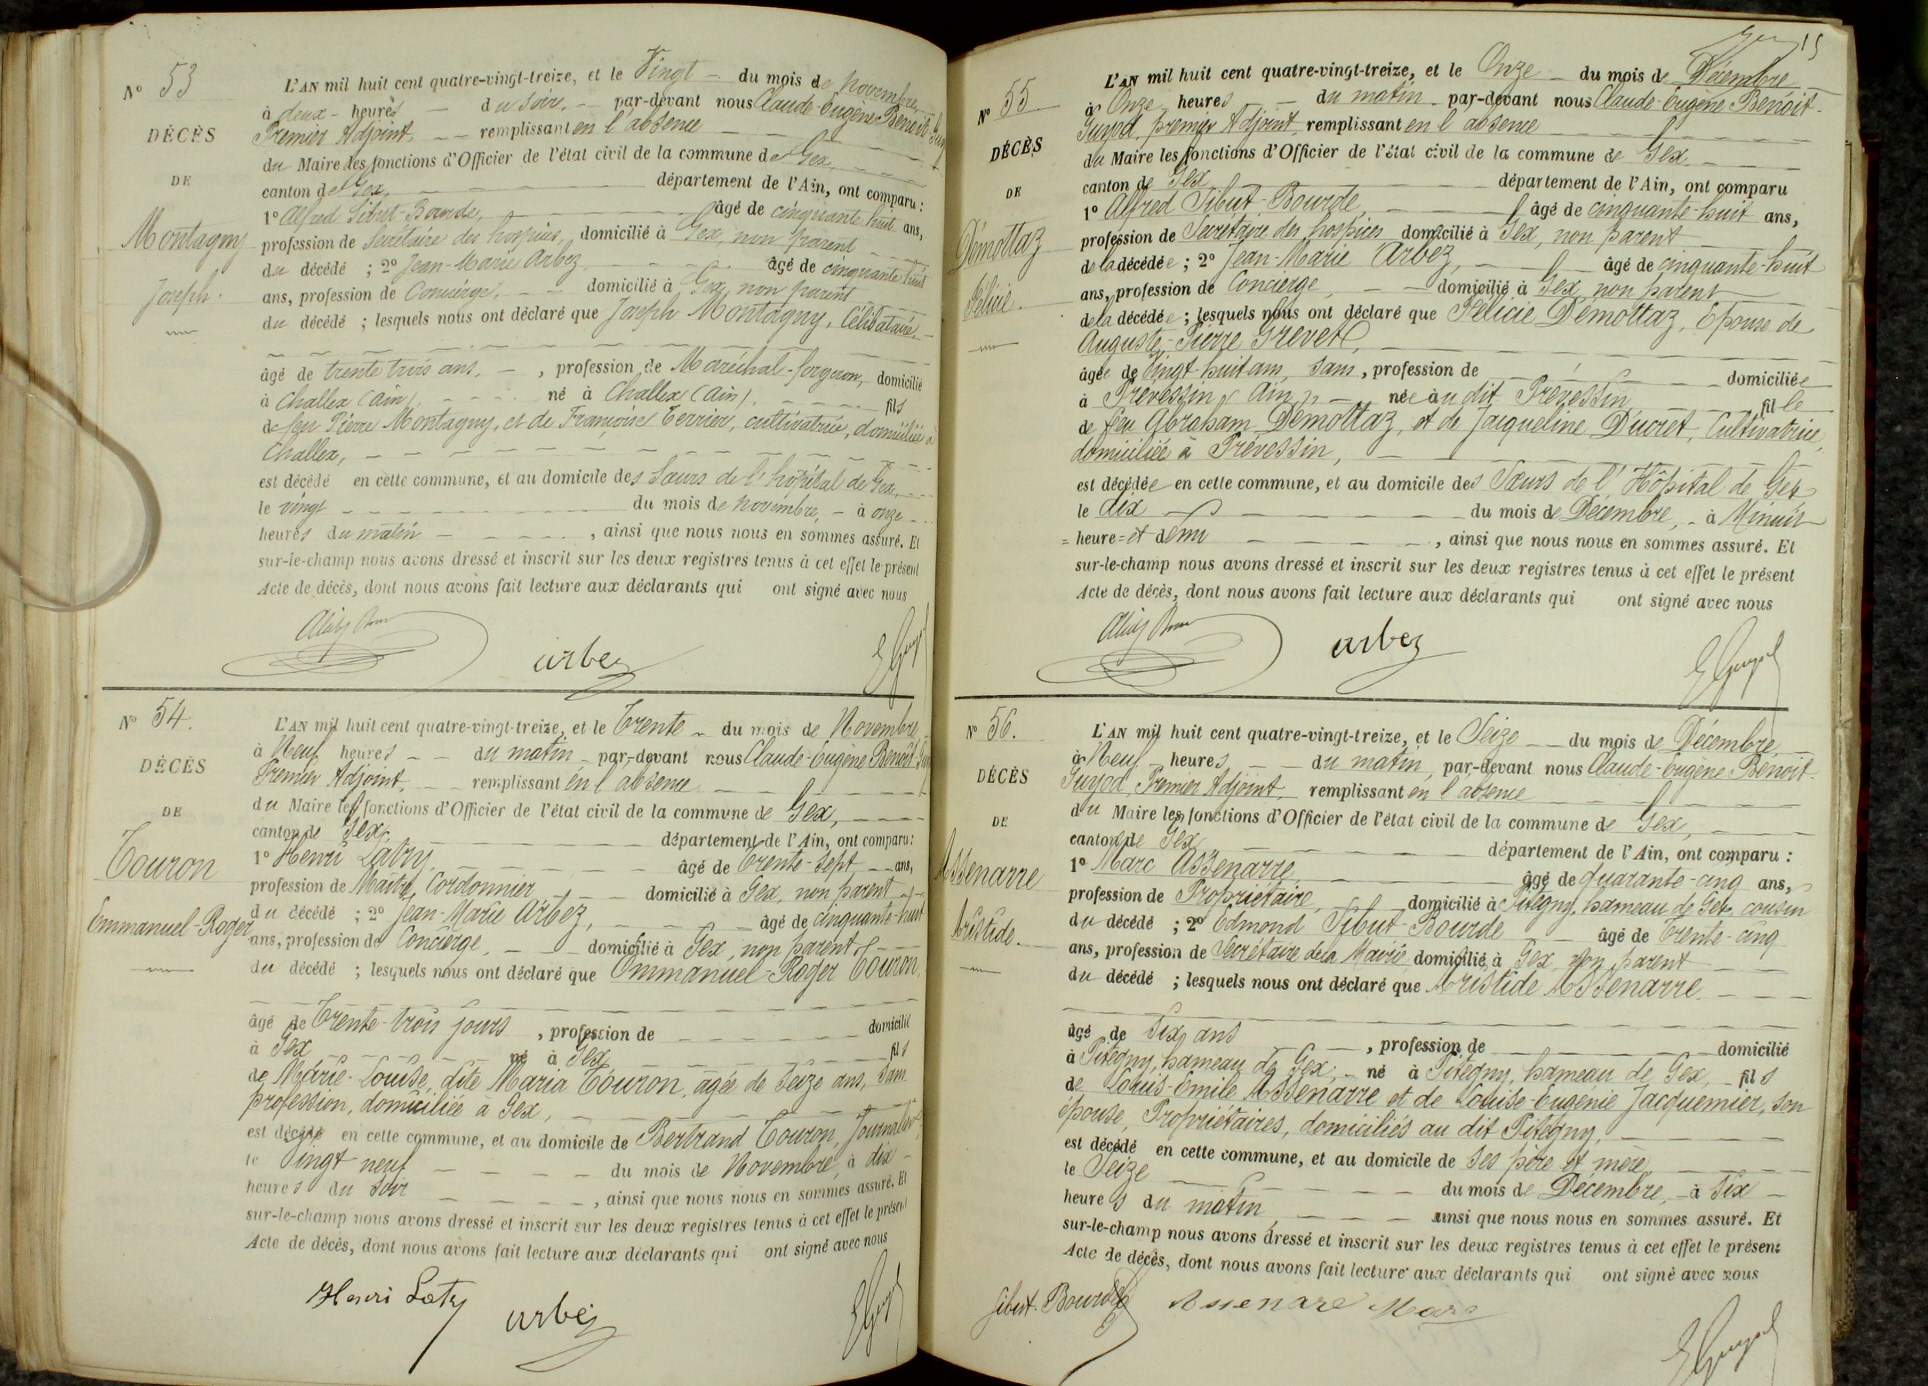 N° 53
DÉCÈS
DE
Montagny
Joseph.
L'AN mil huit cent quatre-vingt-treize, et le Vingt du mois de Novembre
à deux heures du soir, par-devant nous Claude-Eugène Benoit
Premier Adjoint, remplissant en l'absence
du Maire les fonctions d'Officier de l'état civil de la commune de Gex
canton de Gex département de l'Ain, ont comparu :
1° Alfred Sibut-Bourde, âgé de cinquante-huit ans,
profession de Secrétaire des hospices, domicilié à Gex, non parent
du décédé ; 2° Jean-Marie Arbez, âgé de cinquante-huit
ans, profession de Concierge, domicilié à Gex, non parent
du décédé ; lesquels nous ont déclaré que Joseph Montagny, Célibataire,
âgé de trente trois ans, profession de Maréchal-forgeron, domicilié
à Challex (Ain), né à Challex (Ain), fils
de feu Pierre Montagny, et de Françoise Terrier, cultivatrice, domiciliée à
Challex,
est décédé en cette commune, et au domicile des Sœurs de l'hôpital de Gex,
le vingt du mois de Novembre, à onze
heures du matin, ainsi que nous nous en sommes assuré. Et
sur-le-champ nous avons dressé et inscrit sur les deux registres tenus à cet effet le présent
Acte de décès, dont nous avons fait lecture aux déclarants qui ont signé avec nous
Arbez
N° 54.
DÉCÈS
DE
Touron
Emmanuel-Roger
L'AN mil huit cent quatre-vingt-treize, et le Trente du mois de Novembre
à Neuf heures du matin, par-devant nous Claude-Eugène Benoit
Premier Adjoint, remplissant en l'absence
du Maire les fonctions d'Officier de l'état civil de la commune de Gex,
canton de Gex département de l'Ain, ont comparu :
1° Henri Latry, âgé de Trente-Sept ans,
profession de Maître Cordonnier domicilié à Gex, non parent
du décédé ; 2° Jean-Marie Arbez, âgé de cinquante-huit
ans, profession de Concierge, domicilié à Gex, non parent
du décédé ; lesquels nous ont déclaré que Emmanuel-Roger Touron,
âgé de Trente-trois jours, profession de domicilié
à Gex né à Gex fils
de Marie-Louise, dite Maria Touron, agée de Seize ans, Sans
profession, domiciliée à Gex,
est décédé en cette commune, et au domicile de Bertrand Touron, Journalier,
le Vingt neuf du mois de Novembre, à dix
heures du soir, ainsi que nous nous en sommes assuré. Et
sur-le-champ nous avons dressé et inscrit sur les deux registres tenus à cet effet le présent
Acte de décès, dont nous avons fait lecture aux déclarants qui ont signé avec nous
Henri Latry Arbez
15
N° 55
DÉCÈS
DE
Démottaz
Félicie.
L'AN mil huit cent quatre-vingt-treize, et le Onze du mois de Décembre
à Onze heures du matin par-devant nous Claude-Eugène Benoit-
Guyod, premier Adjoint, remplissant en l'absence
du Maire les fonctions d'Officier de l'état civil de la commune de Gex
canton de Gex département de l'Ain, ont comparu
1° Alfred Sibut-Bourde, âgé de cinquante-huit ans,
profession de Secrétaire des hospices domicilié à Gex, non parent
de la décédée ; 2° Jean-Marie Arbez, âgé de cinquante-huit
ans, profession de Concierge, domicilié à Gex, non parent
de la décédée ; lesquels nous ont déclaré que Félicie Démottaz, Epouse de
Auguste-Pierre Grevet,
âgée de Vingt-huit ans, Sans, profession de domiciliée
à Prévessin (Ain), née au dit Prévessin fille
de feu Abraham Démottaz, et de Jacqueline Ducret, Cultivatrice,
domiciliée à Prévessin,
est décédée en cette commune, et au domicile des Sœurs de l'Hôpital de Gex
le dix du mois de Décembre, à Minuit
heure et demi, ainsi que nous nous en sommes assuré. Et
sur-le-champ nous avons dressé et inscrit sur les deux registres tenus à cet effet le présent
Acte de décès, dont nous avons fait lecture aux déclarants qui ont signé avec nous
Arbez
N° 56.
DÉCÈS
DE
Assenarre
Aristide.
L'AN mil huit cent quatre-vingt-treize, et le Seize du mois de Décembre
à Neuf heures du matin, par-devant nous Claude-Eugène Benoit-
Guyod, Premier Adjoint, remplissant en l'absence
du Maire les fonctions d'Officier de l'état civil de la commune de Gex,
canton de Gex département de l'Ain, ont comparu :
1° Marc Assenarre, âgé de quarante-cinq ans,
profession de Propriétaire, domicilié à Pitegny, hameau de Gex, cousin
du décédé ; 2° Edmond Sibut-Bourde âgé de Trente-cinq
ans, profession de Secrétaire de la Mairie domicilié à Gex, non parent
du décédé ; lesquels nous ont déclaré que Aristide Assenarre
âgé de Six ans, profession de domicilié
à Pitegny, hameau de Gex, né à Pitegny, hameau de Gex, fils
de Louis-Emile Assenarre et de Louise-Eugenie Jacquemier, son
épouse, Propriétaires, domiciliés au dit Pitegny,
est décédé en cette commune, et au domicile de ses père et mère
le Seize du mois de Décembre, à Six
heures du matin, ainsi que nous nous en sommes assuré. Et
sur-le-champ nous avons dressé et inscrit sur les deux registres tenus à cet effet le présent
Acte de décès, dont nous avons fait lecture aux déclarants qui ont signé avec nous
Sibut-Bourde Assenare Marc